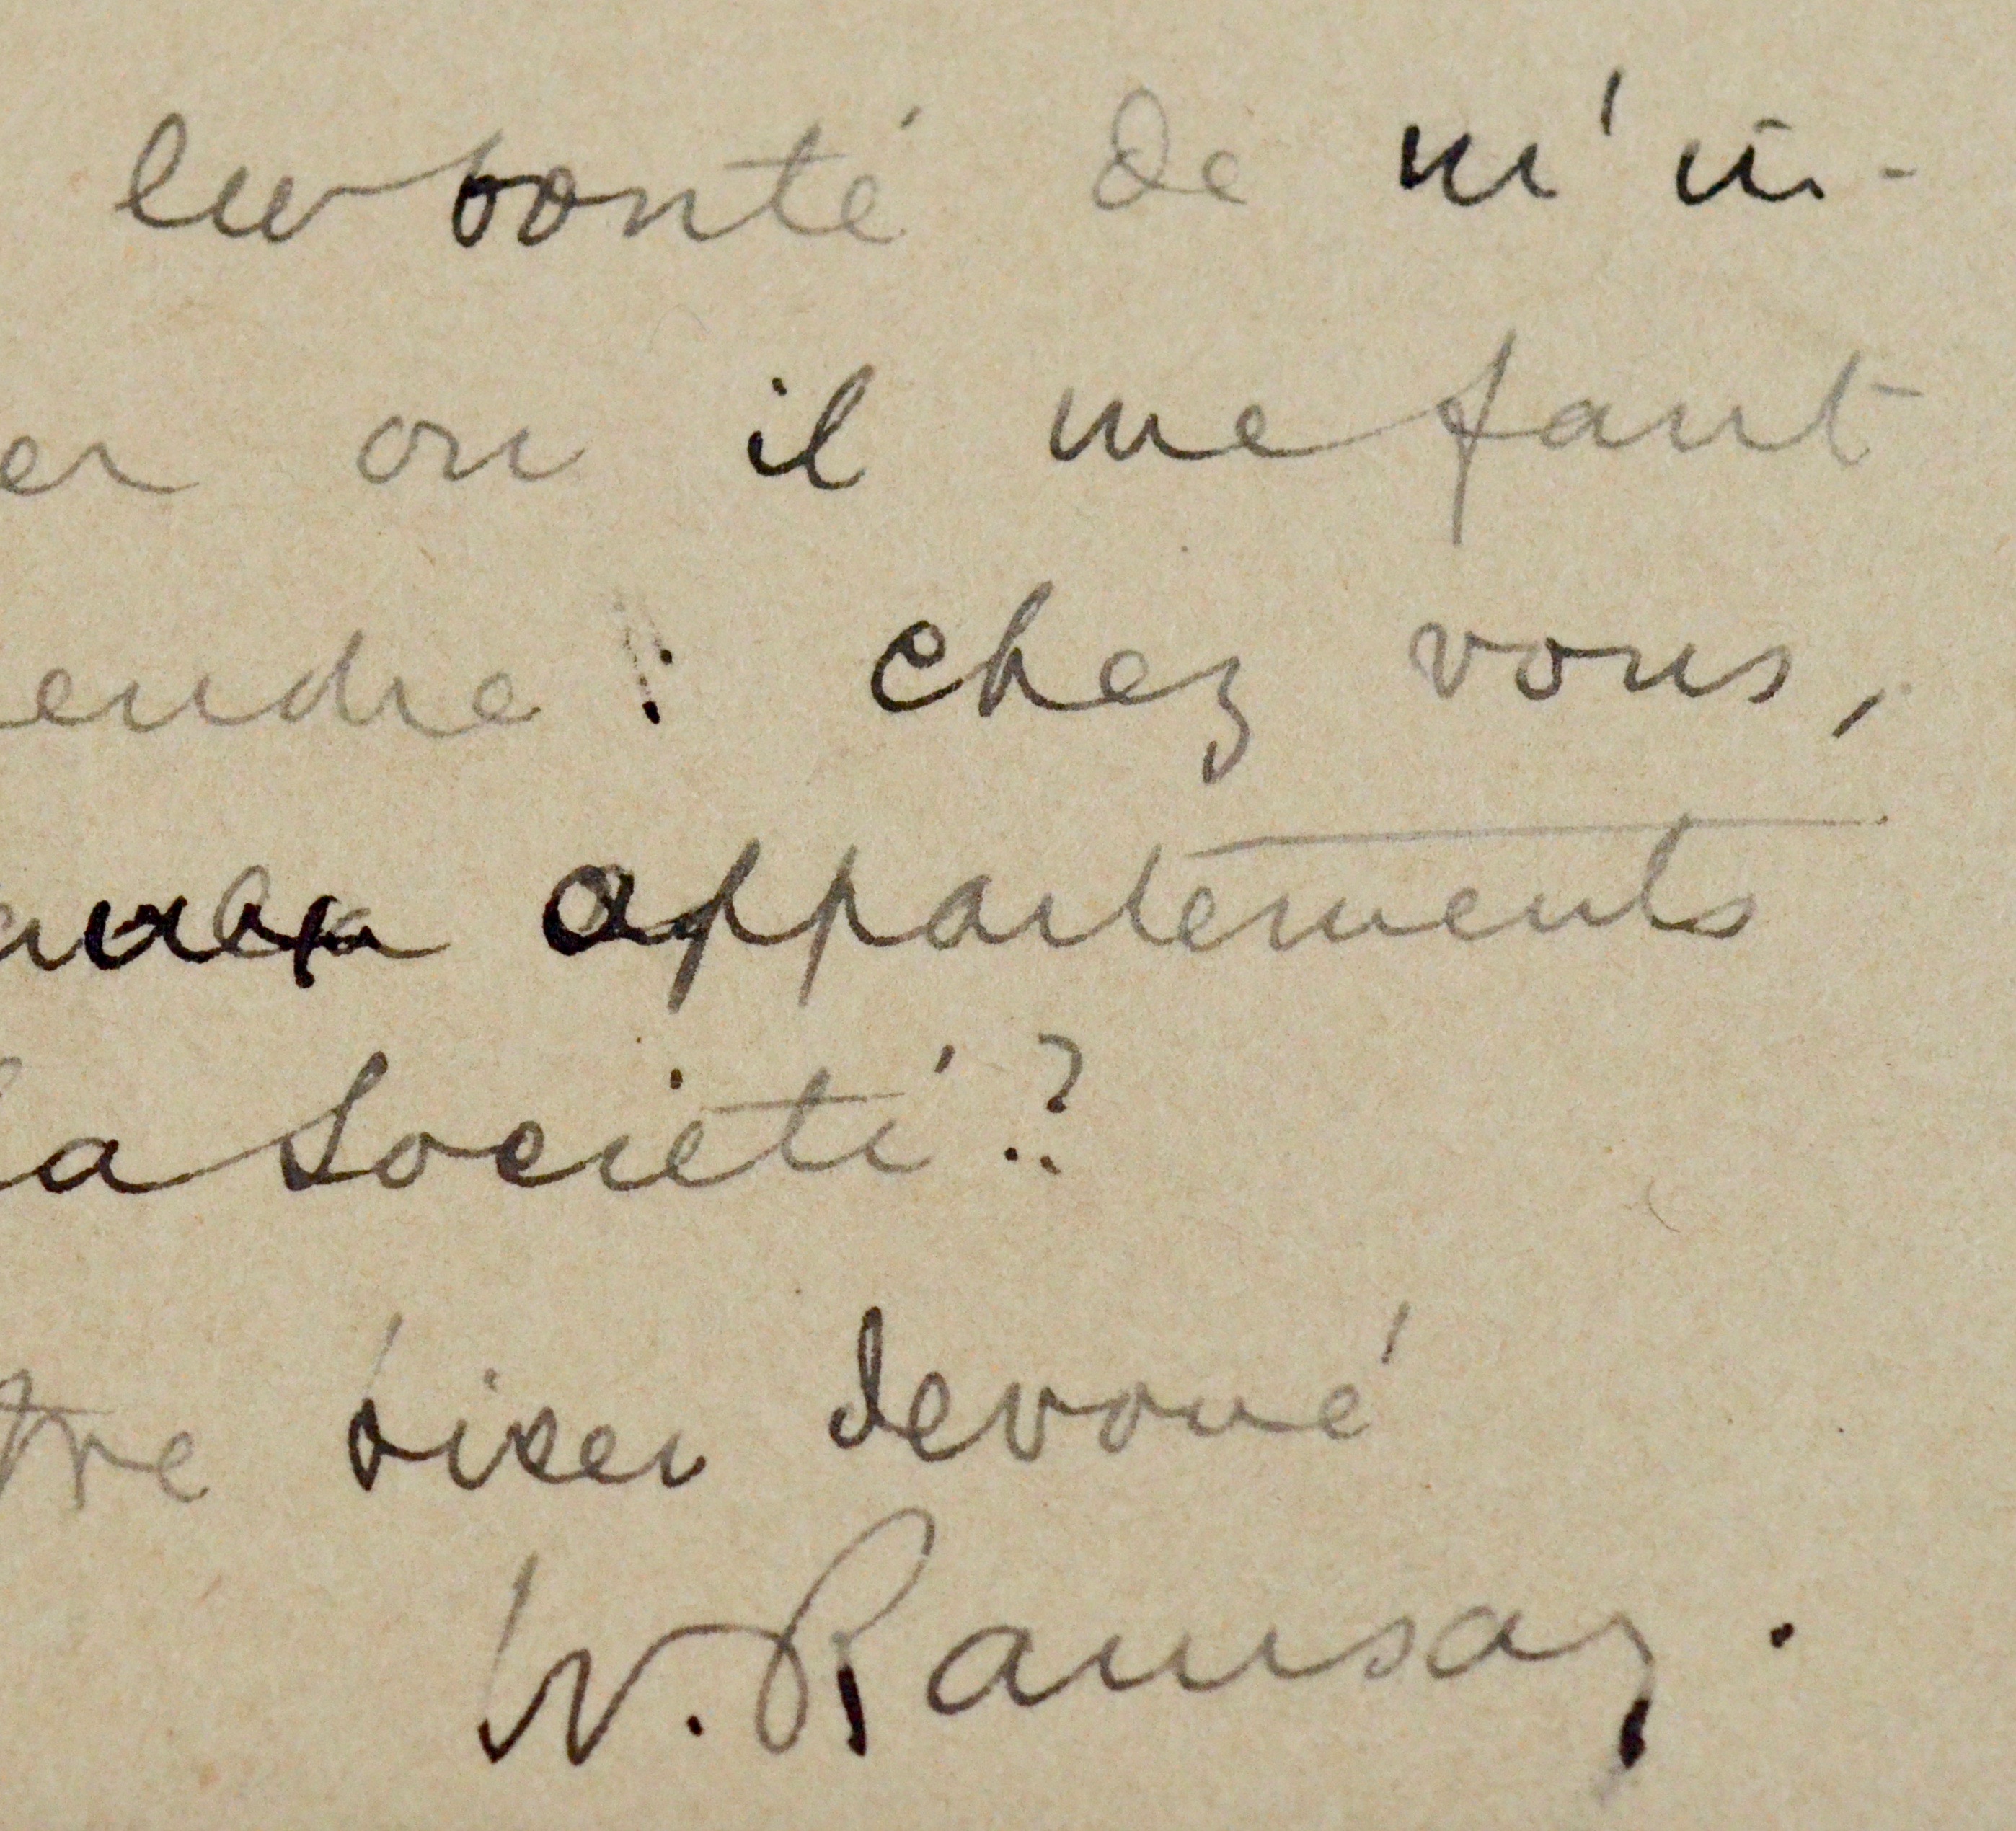 la bonté de m'in-
er ou il me faut
endre: chez vous,
aux appartements
la Societé?
tre bien devoué
W. Ramsay.